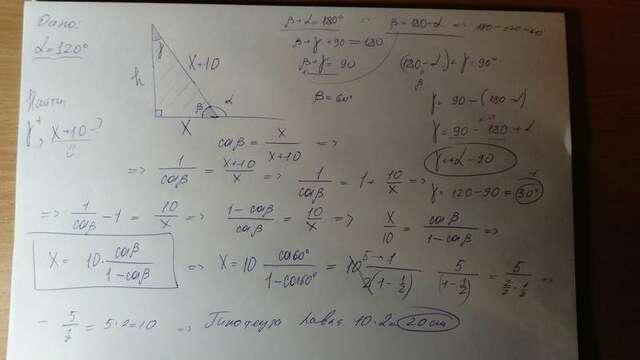 Дано:
α=120°
Найти
γ, x+10 - ?
h
γ
x+10
β
α
x
β+α=180°
β=180-α
β+γ+90=180
β+γ=90
β=60°
(180-α)+γ=90°
β
γ=90-(180-α)
γ=90-180+α
γ=α-90
γ=120-90=30°
cosβ = x/(x+10) =>
=> 1/cosβ = (x+10)/x => 1/cosβ = 1+10/x =>
=> 1/cosβ - 1 = 10/x => (1-cosβ)/cosβ = 10/x => x/10 = cosβ/(1-cosβ) =>
x = 10·cosβ/(1-cosβ) => x=10 cos60°/(1-cos60°) = 10·1/2(1-1/2) 5/(1-1/2) = 5/(2/2-1/2) =>
= 5/(1/2) = 5·2=10 => Гипотенуза равна 10·2=20см